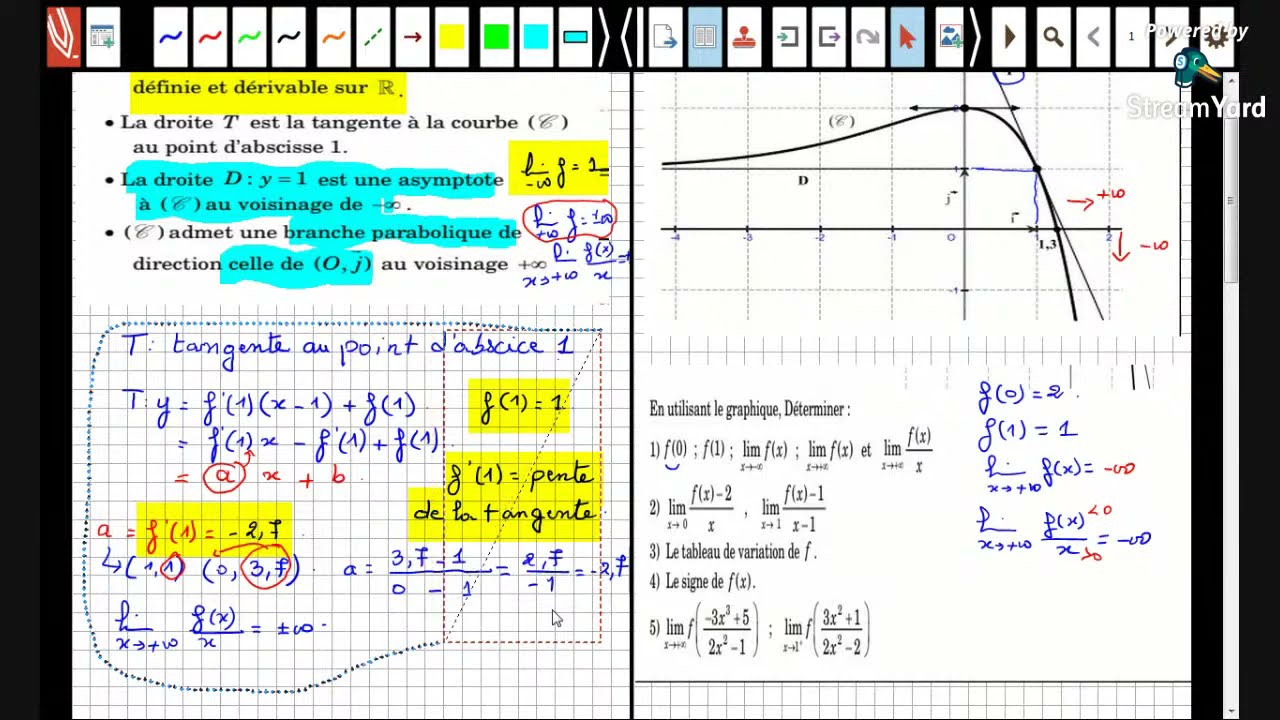 Powered by
StreamYard
1
définie et dérivable sur ℝ.
• La droite T est la tangente à la courbe (𝒞)
au point d'abscisse 1.
• La droite D : y = 1 est une asymptote
à (𝒞) au voisinage de −∞.
• (𝒞) admet une branche parabolique de
direction celle de (O, j) au voisinage +∞
lim f = 1
-∞
lim f = ±∞
+∞
lim f(x)/x = +
x→+∞
T : tangente au point d'abscice 1
T: y = f'(1)(x-1) + f(1)
= f'(1)x - f'(1) + f(1)
= a x + b
f(1) = 1
f'(1) = pente
de la tangente
a = f'(1) = -2,7
↳(1,1) (0, 3,7). a = (3,7 - 1)/(0 - 1) = 2,7/-1 = -2,7
lim f(x)/x = ±∞.
x→+∞
(𝒞)
1
D
j
i
+∞
-4 -3 -2 O 1,3 2
-∞
-1
En utilisant le graphique, Déterminer :
1) f(0) ; f(1) ; lim x→-∞ f(x) ; lim x→+∞ f(x) et lim x→+∞ f(x)/x
2) lim x→0 (f(x)−2)/x , lim x→1 (f(x)−1)/(x−1)
3) Le tableau de variation de f.
4) Le signe de f(x).
5) lim x→+∞ f((−3x³+5)/(2x²−1)) ; lim x→1⁺ f((3x²+1)/(2x²−2))
f(0) = 2.
f(1) = 1
lim f(x) = -∞
x→+∞
lim f(x)<0 / x>0 = -∞
x→+∞